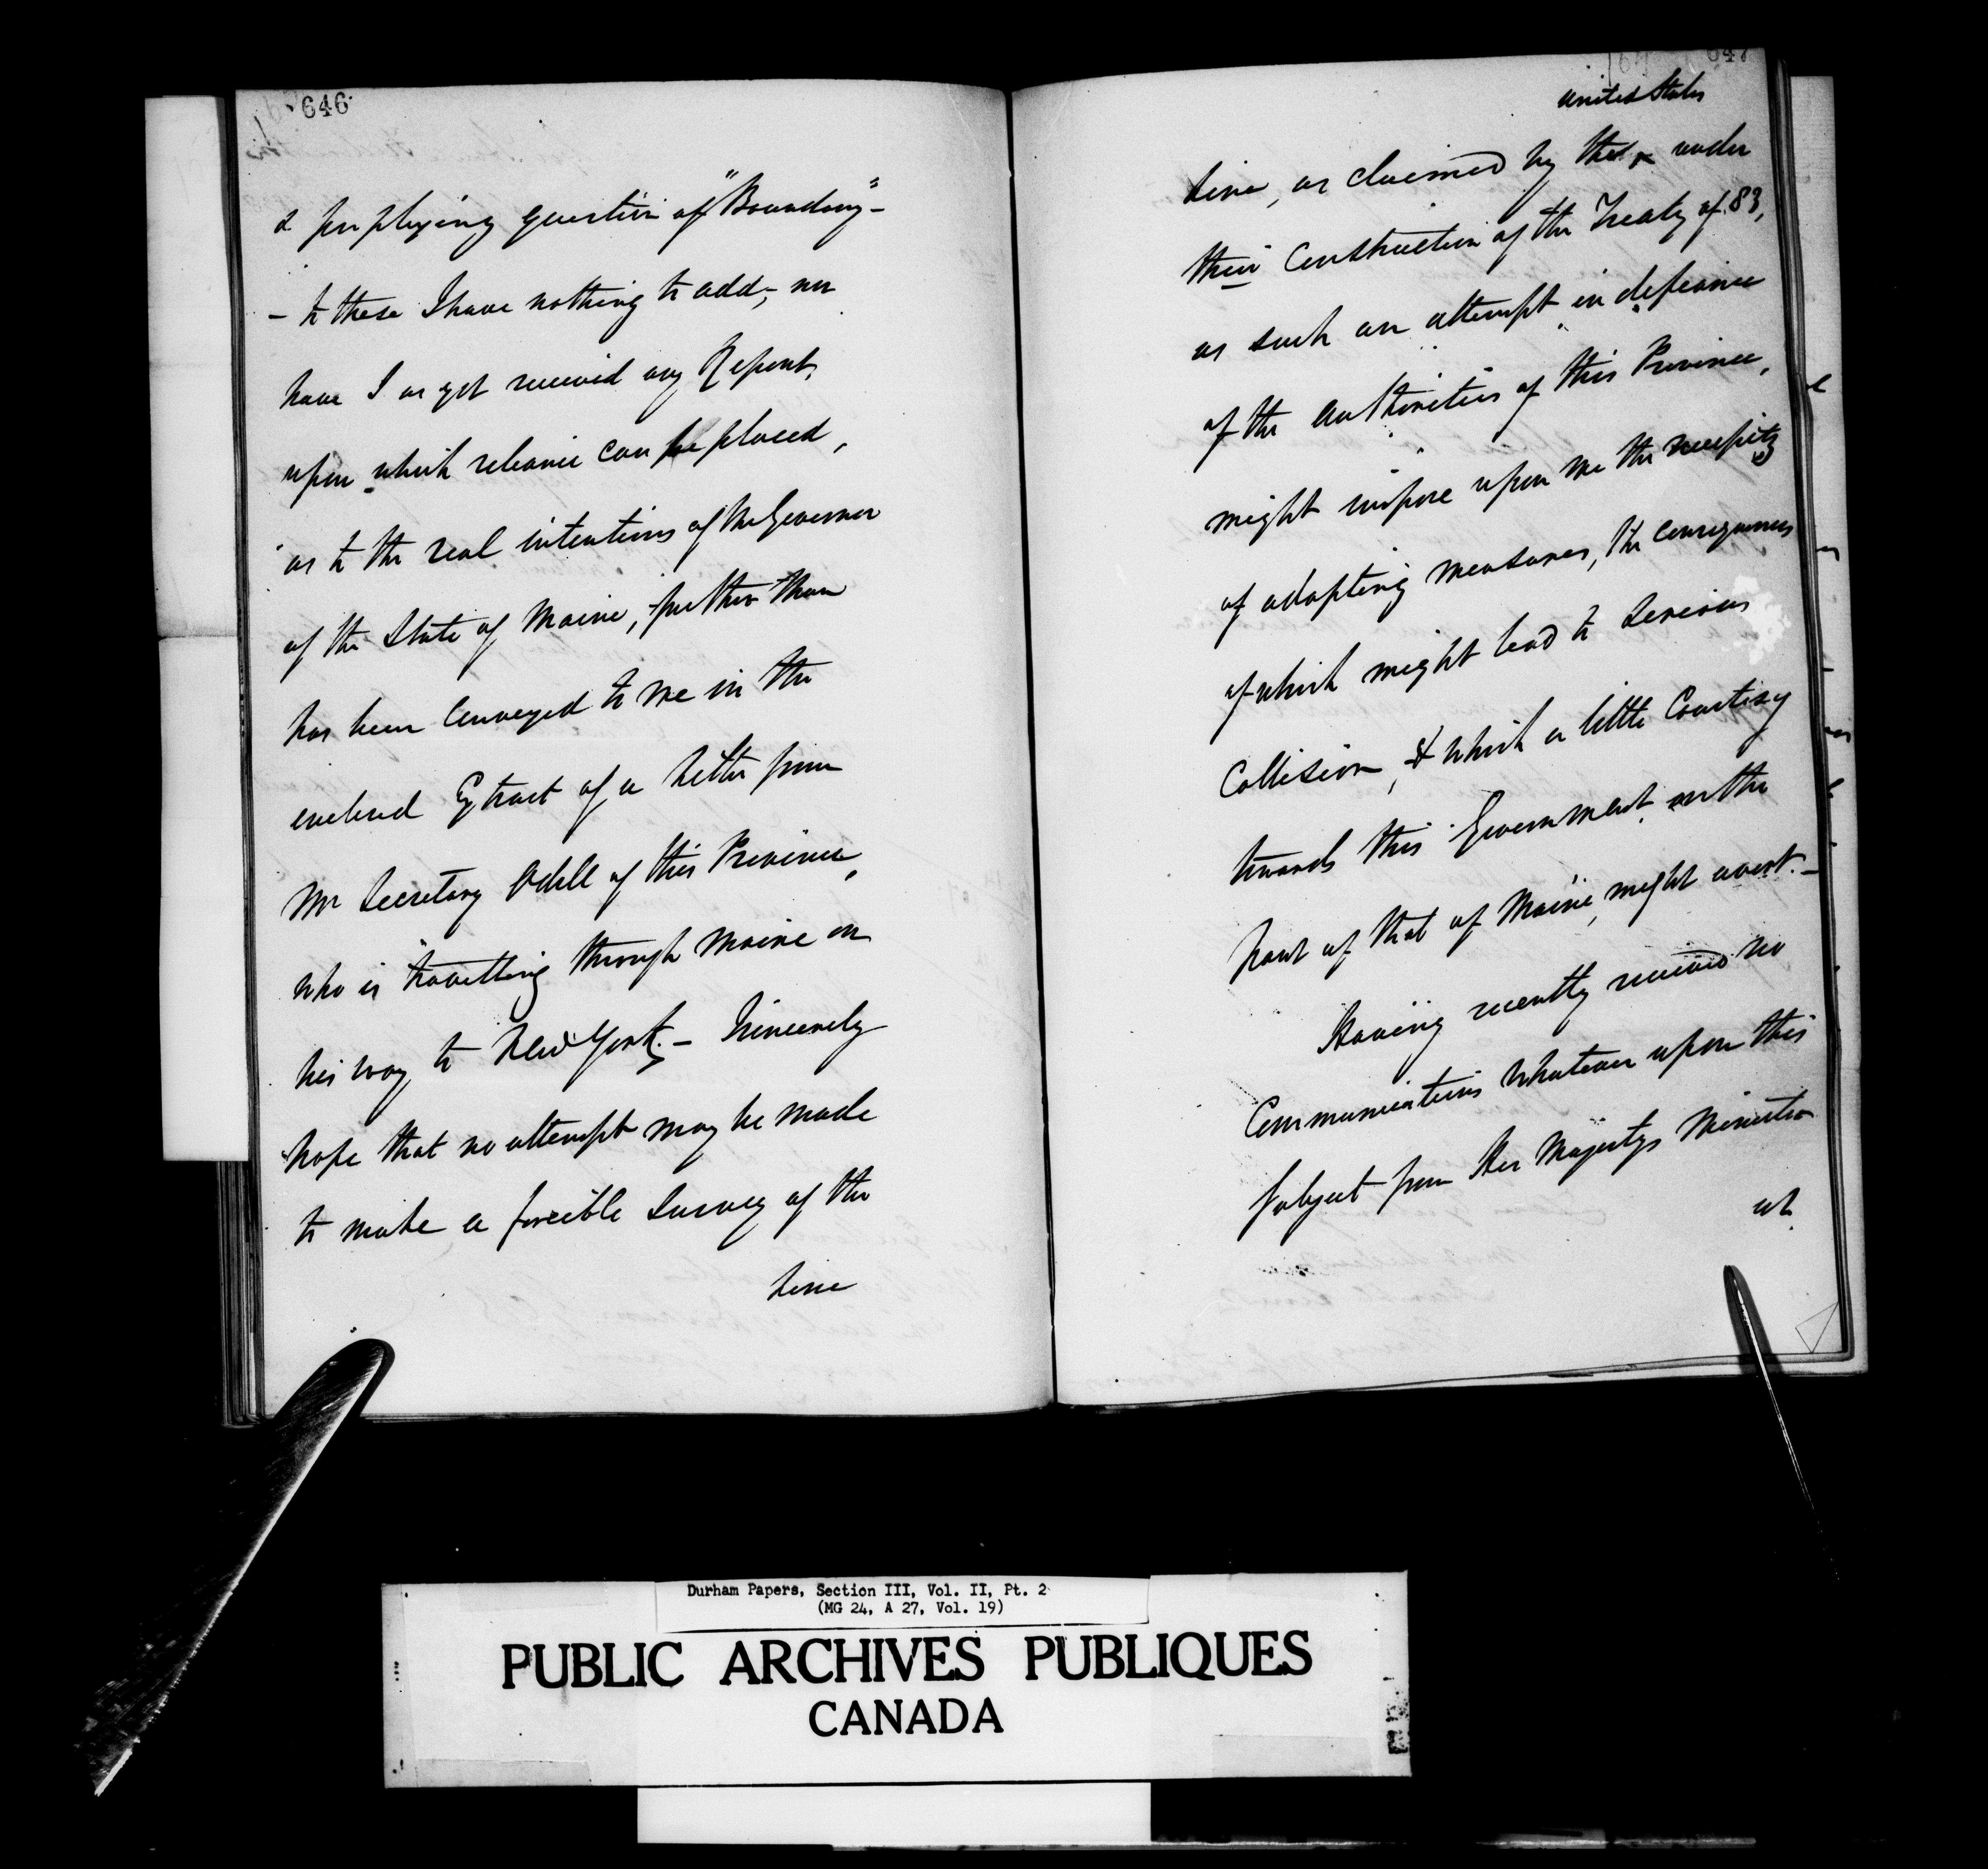 646
& perplexing question of "Boundary" -
- to these I have nothing to add -, nor
have I as yet received any Report,
upon which reliance can be placed,
as to the real intentions of the Governor
of the State of Maine, further than
has been Conveyed to me in the
enclosed Extract of a Letter from
Mr Secretary Odell of this Province,
who is travelling through Maine on
his way to New York. - Sincerely
hope that no attempt may be made
to make a forcible Survey of the
Line
647
United States
Line, as claimed by the x under
their Construction of the Treaty of 83,
as such an attempt in defiance
of the Authorities of this Province,
might impose upon me the necessity
of adopting measures, the consequences
of which might lead to Serious
Collision, & which a little Courtesy
towards this Government on the
part of that of Maine, might avert. -
Having recently received no
Communications whatever upon this
Subject from Her Majestys Minister
at
Durham Papers, Section III, Vol. II, Pt. 2
(MG 24, A 27, Vol. 19)
PUBLIC ARCHIVES PUBLIQUES
CANADA